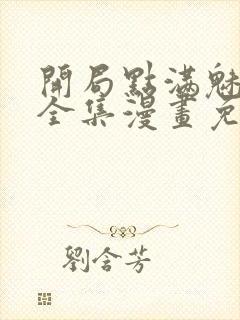 開局點滿魅
全集漫畫免
劉含芳